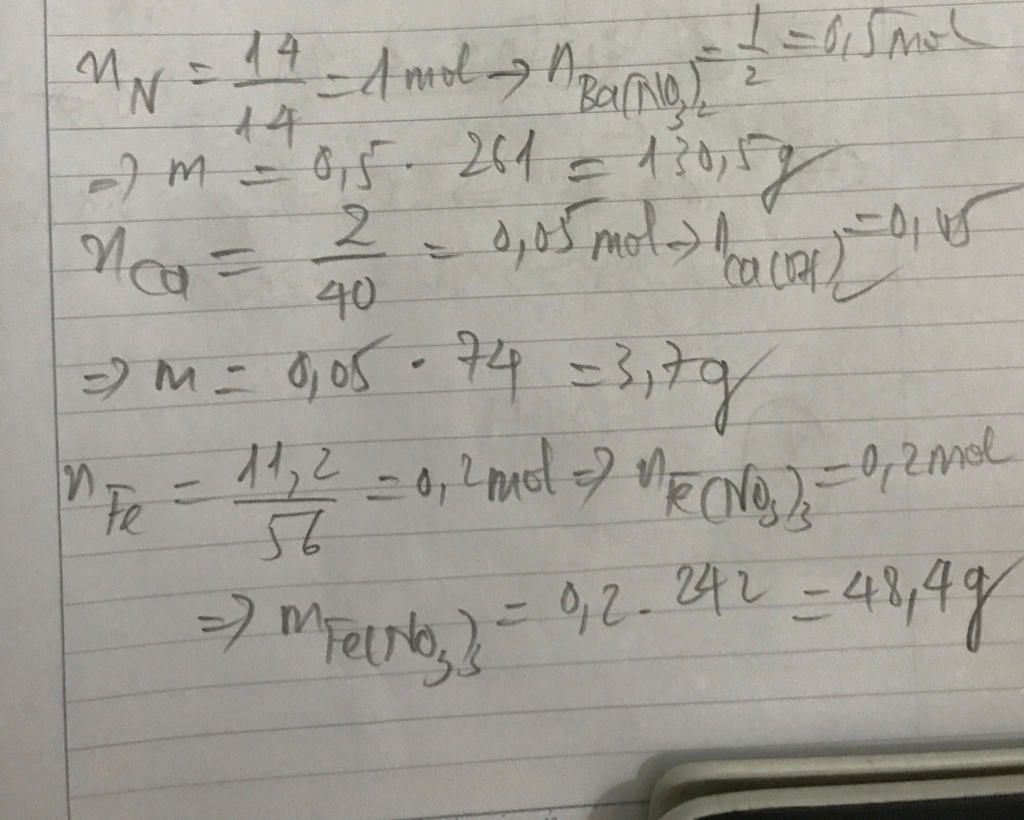 n_N = 14/14 = 1 mol → n_Ba(NO₃)₂ = 1/2 = 0,5 mol
⇒ m = 0,5 · 261 = 130,5g
n_Ca = 2/40 = 0,05 mol → n_Ca(OH)₂ = 0,05
⇒ m = 0,05 · 74 = 3,7g
n_Fe = 11,2/56 = 0,2 mol ⇒ n_Fe(NO₃)₃ = 0,2 mol
⇒ m_Fe(NO₃)₃ = 0,2 . 242 = 48,4g